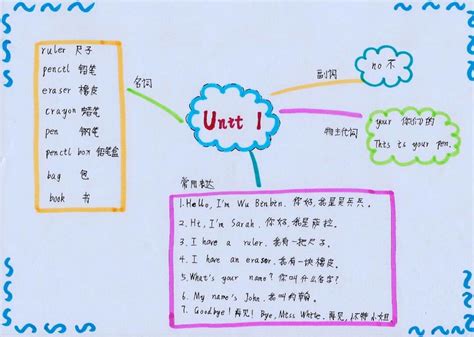 Unit 1
名词
ruler 尺子
pencil 铅笔
eraser 橡皮
crayon 蜡笔
pen 钢笔
pencil box 铅笔盒
bag 包
book 书
副词
no 不
物主代词
your 你(们)的
This is your pen.
常用表达
1. Hello, I'm Wu Binbin. 你好,我是吴斌斌.
2. Hi, I'm Sarah. 你好,我是萨拉.
3. I have a ruler. 我有一把尺子.
4. I have an eraser. 我有一块橡皮.
5. What's your name? 你叫什么名字?
6. My name's John. 我叫约翰.
7. Goodbye! 再见! Bye, Miss White. 再见,怀特小姐.